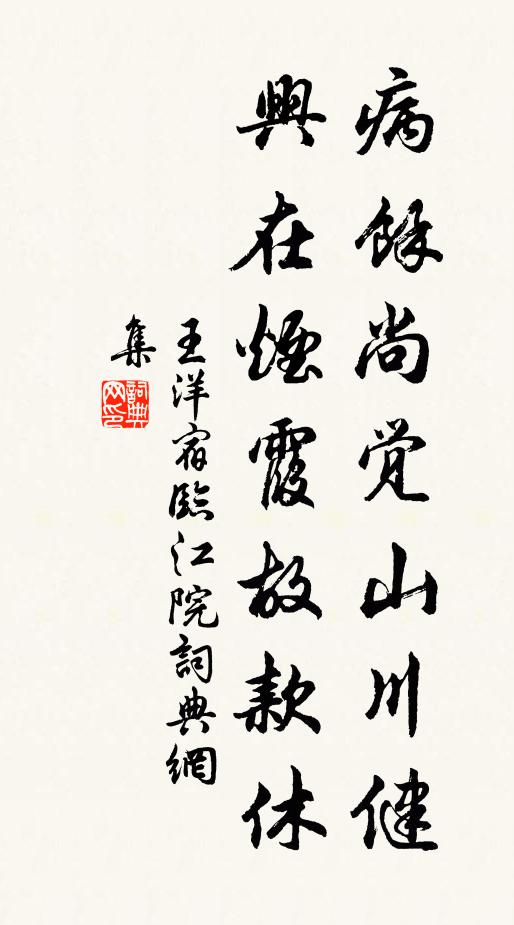 病餘尚觉山川健
興在煙霞故款休
王洋宿臨江院詞典網
集
詞典
网印